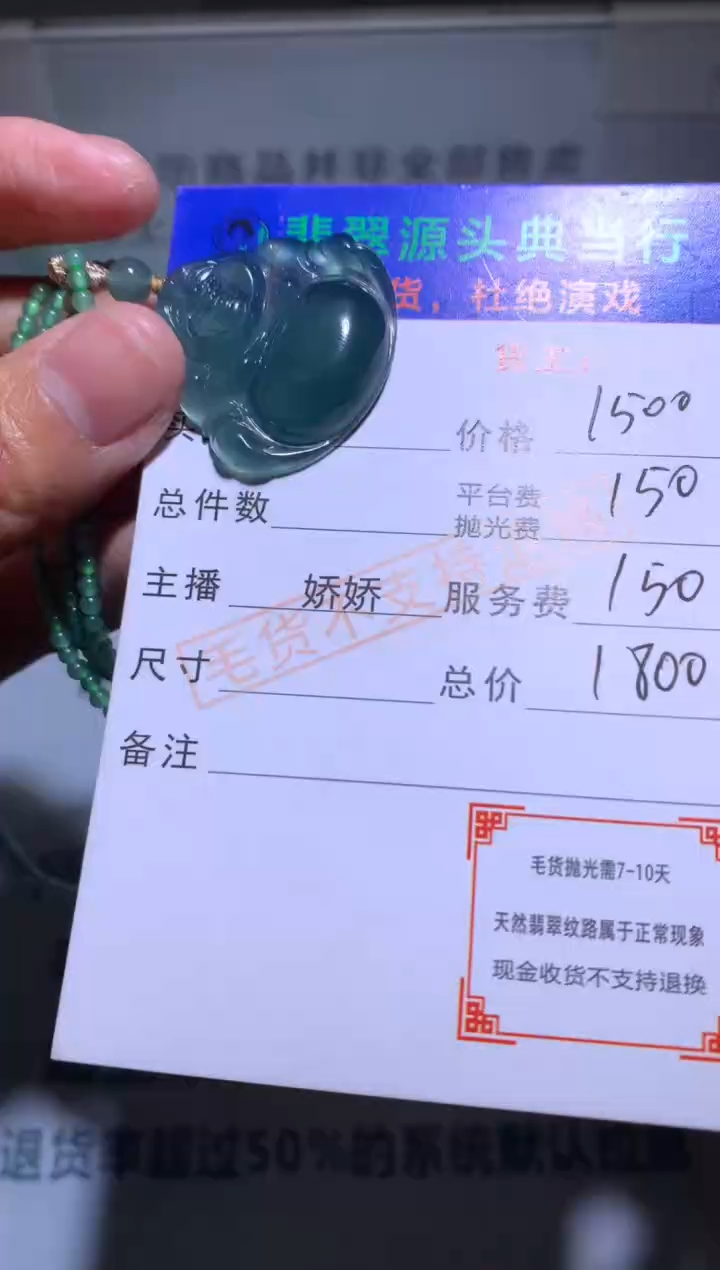 翡翠源头典当行
货，杜绝演戏
货工：
价格 1500
总件数 平台费 150
抛光费
主播 娇娇 服务费 150
毛货不支持
尺寸 总价 1800
备注
毛货抛光需7-10天
天然翡翠纹路属于正常现象
现金收货不支持退换
退货率超过50%的系统默认